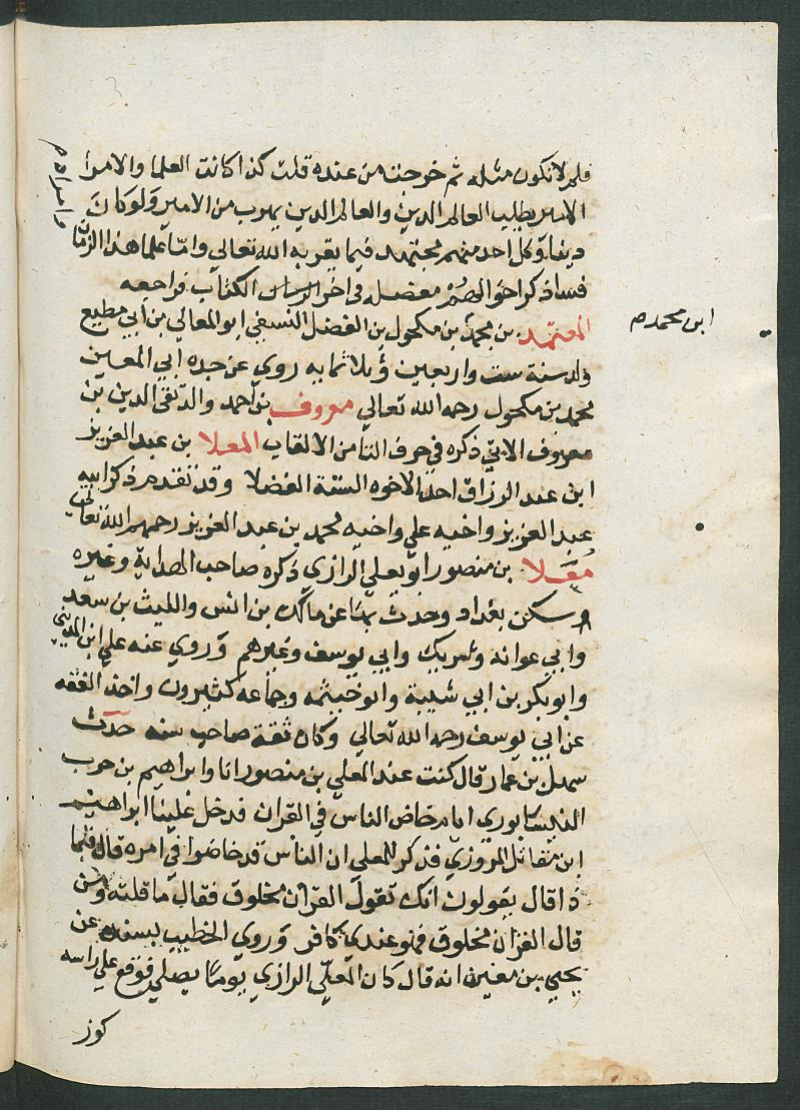 فلم لا نكون مثله ثم خرجت من عنده قلت كذا كانت العلما والامرا
الامير يطلب العالم الدين والعالم الدين يهرب من الامير ولو كان
دينا وكل احد منهم مجتهد فيما يقربه الله تعالى واما علما هذا الزمان
فساذكر احوالهم مفصله في اخر الكتاب فراجعه
المعتمد بن محمد بن مكحول بن الفضل النسفي ابو المعالي بن ابي مطيع
ولد سنة ست واربعين وثلاثمايه روي عن جده ابي المعين
محمد بن مكحول رحمه الله تعالي معروف بن احمد والد تقي الدين بن
معروف الاتي ذكره في حرف التا من الالقاب المعلا بن عبد العزيز
ابن عبد الرزاق احد الاخوه الستة الفضلا وقد تقدم ذكر ابيه
عبد العزيز واخيه علي واخيه محمد بن عبد العزيز رحمهم الله تعالي
معلا بن منصور ابو يعلي الرازي ذكره صاحب الهداية وغيره
سكن بغداد وحدث بها عن مالك بن انس والليث بن سعد
وابي عوانه وشريك وابي يوسف وغيرهم وروي عنه علي ابن المديني
وابو بكر بن ابي شيبة وابو خيثمه وجماعه كثيرون واخذ الفقه
عن ابي يوسف رحمه الله تعالي وكان ثقة صاحب سنه حدث
سهل بن عمار قال كنت عند المعلي بن منصور انا وابراهيم بن حرب
النيسابوري ايام خاض الناس في القران فدخل علينا ابراهيم
ابن مقاتل المروزي فذكر للمعلي ان الناس قد خاضوا في امره قال فيما
ذا قال يقولون انك تقول القران مخلوق فقال ما قلته ومن
قال القران مخلوق فهو عندي كافر وروي الخطيب بسنده عن
يحيي بن معين انه قال كان المعلي الرازي يوما يصلي فوقع علي راسه
كوز
ابن محمد